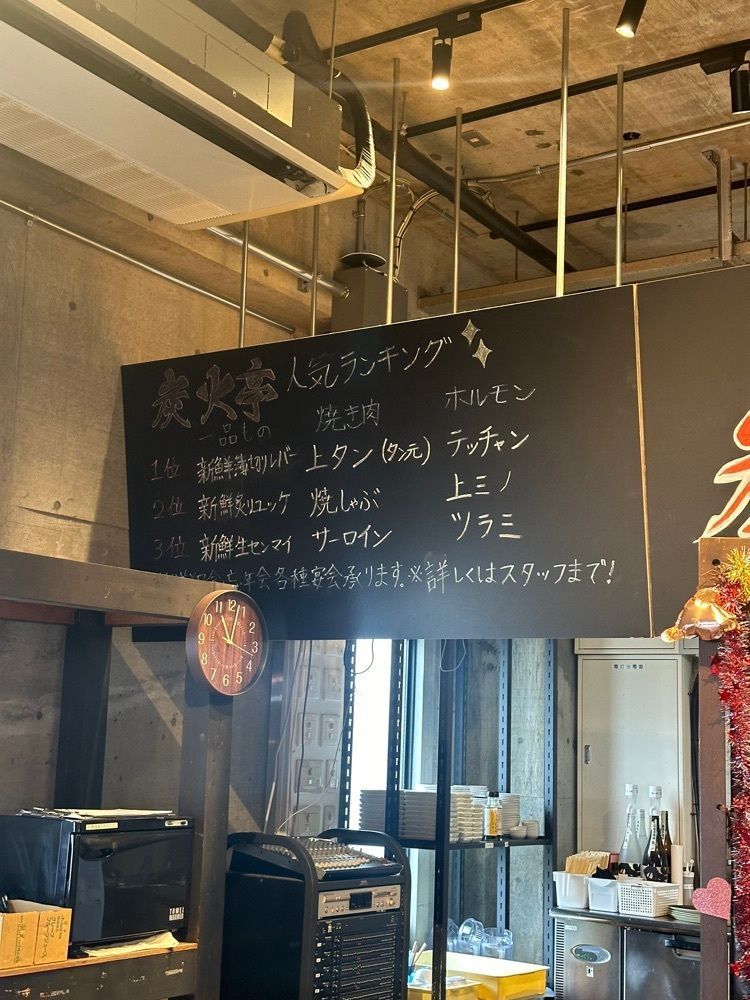 炭火亭 人気ランキング
一品もの 焼き肉 ホルモン
1位 新鮮薄切りレバー 上タン(タン元) テッチャン
2位 新鮮炙りユッケ 焼しゃぶ 上ミノ
3位 新鮮生センマイ サーロイン ツラミ
忘年会各種宴会承ります。※詳しくはスタッフまで!
11 12 1
10 2
9 3
8 4
7 6 5
電灯分電盤